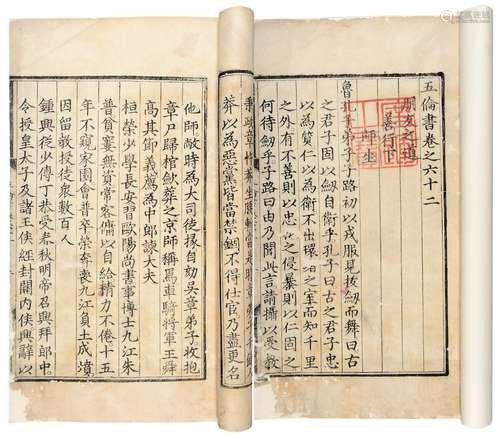 五倫書卷之六十二
朋友之道
善行下
師生
魯孔子弟子子路初以戎服見拔劒而舞曰古
之君子固以劒自衛乎孔子曰古之君子忠
以為質仁以為衛不出環之室而知千里
之外有不善則以忠之侵暴則以仁固之
何待劒乎子路曰由乃聞此言請攝以受教
莽以為惡黨皆當禁錮不得仕宦乃盡更名
他師敞時為大司徒掾自劾吳章弟子收抱
章尸歸棺歛葬之京師稱焉車騎將軍王舜
高其節義薦為中郎諫大夫
桓榮少學長安習歐陽尚書事博士九江朱
普貧窶無資常客傭以自給精力不倦十五
年不窺家園會普卒榮奔喪九江負土成墳
因留教授徒衆數百人
鍾興從少傅丁恭受春秋明帝召興拜郎中
令授皇太子及諸王侯經封關內侯興辭以